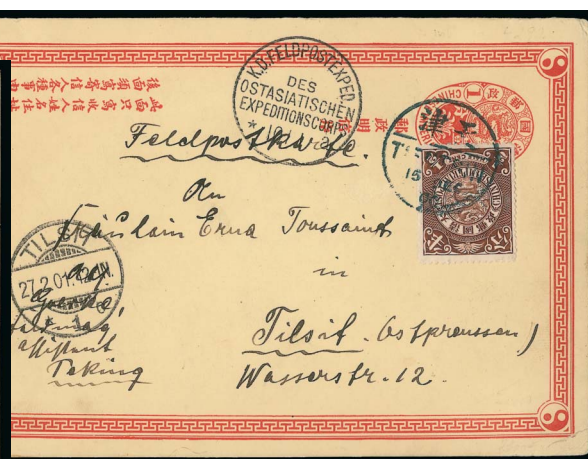 K.D. FELDPOSTEXPED.
DES
OSTASIATISCHEN
EXPEDITIONSCORPS
後面須寫寄信人各種事由
此面只寫收信人姓名住址
Feldpostkarte.
An
Fräulein Erna Toussaint
in
Tilsit. (Ostpreussen)
Wasserstr. 12.
TILSIT
27.2.01.
Peking